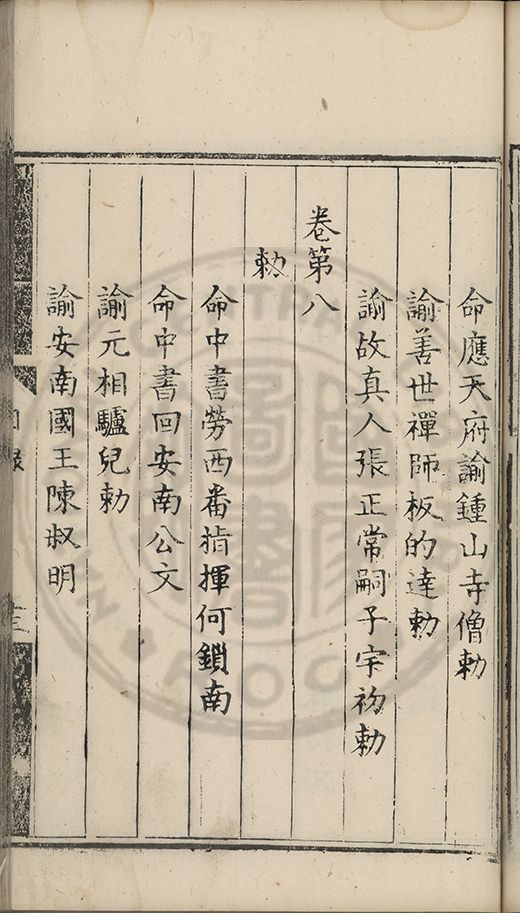 命應天府諭鍾山寺僧勅
諭善世禪師板的達勅
諭故真人張正常嗣子宇初勅
卷第八
勅
命中書勞西番指揮何鎖南
命中書回安南公文
諭元相驢兒勅
諭安南國王陳叔明
目錄
十三